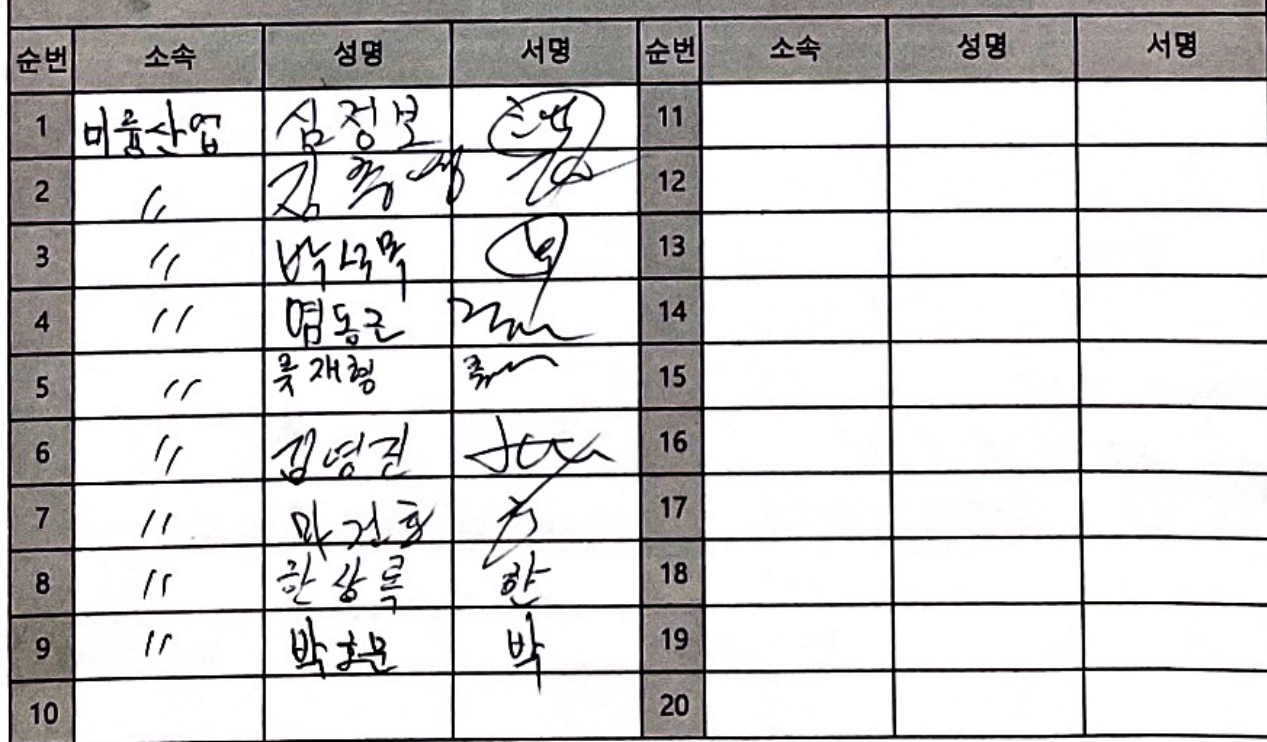 순번 소속 성명 서명 순번 소속 성명 서명
1 미륭산업 심정보 11
2 〃 김 12
3 〃 박 13
4 〃 염동근 14
5 〃 류재형 15
6 〃 김영진 16
7 〃 마건호 17
8 〃 한상록 한 18
9 〃 박호문 박 19
10 20